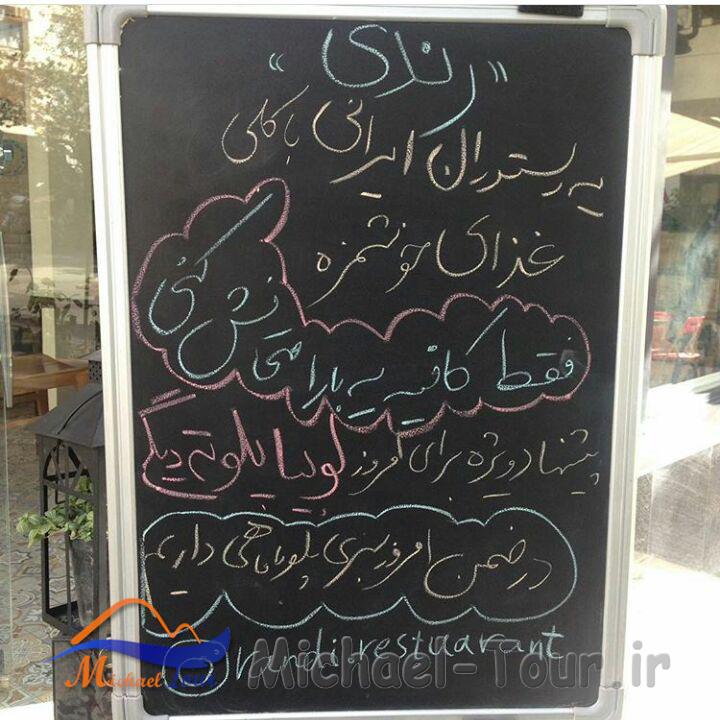 "رندی"
یه رستوران ایرانی با کلی
غذای خوشمزه
فقط کافیه یه بار امتحانش کنی
پیشنهاد ویژه برای امروز لوبیا پلو ته دیگی
در ضمن امروز سبزی پلو با ماهی داریم
randi.restuarant
Michael Tour
Michael-Tour.ir